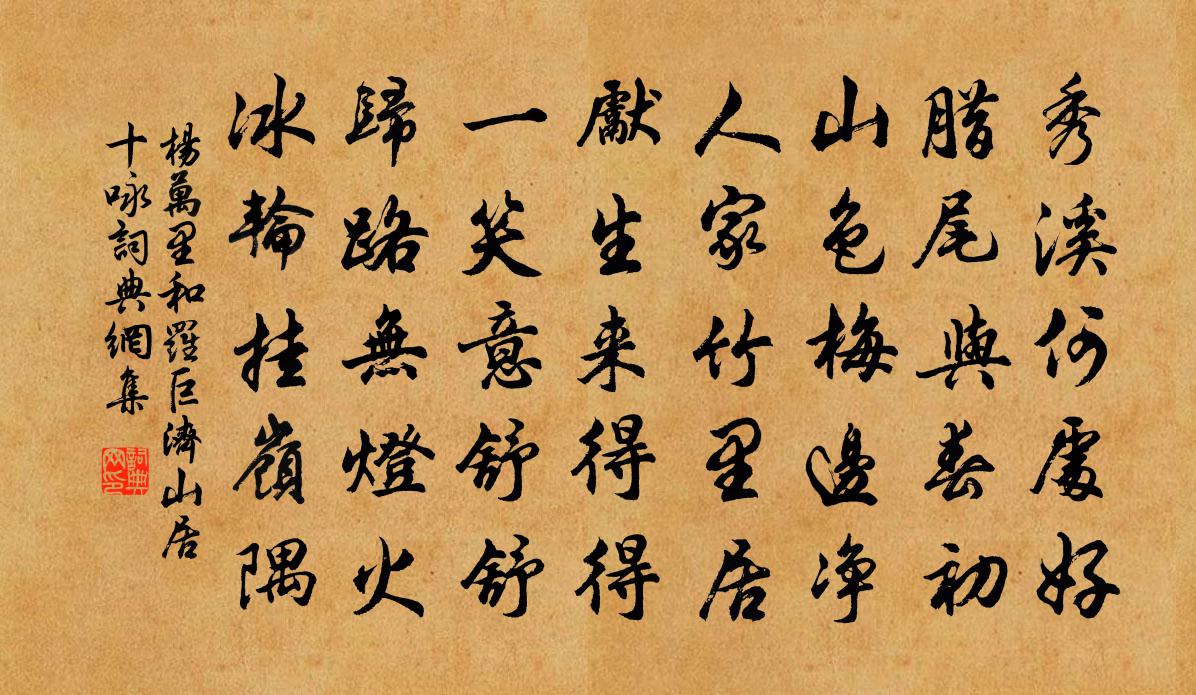 秀溪何處好
腊尾與春初
山色梅邊净
人家竹里居
獻生来得得
一笑意舒舒
歸路無燈火
冰輪挂嶺隅
楊萬里和羅巨濟山居
十咏詞典網集
詞典網印